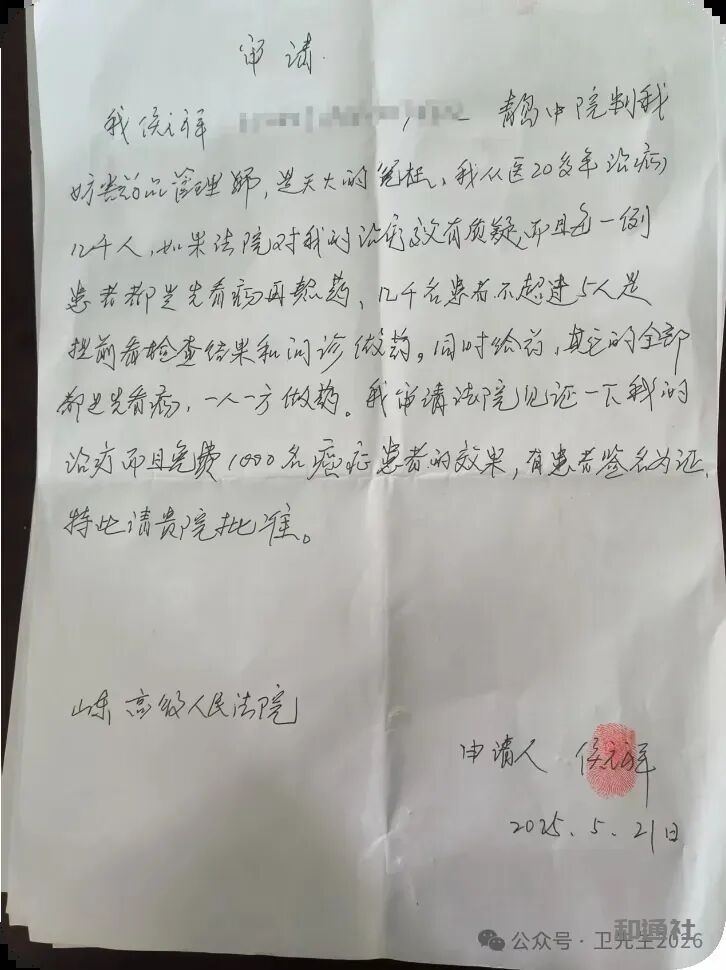 申请
我侯元祥 , 青岛中院判我
妨害药品管理罪,是天大的冤枉。我从医20多年治病
几千人,如果法院对我的治疗效有质疑,而且每一例
患者都是先看病再熬药,几千名患者不超过5人是
提前看检查结果和问诊做药。同时给药,其它的全部
都是先看病,一人一方做药。我申请法院见证一下我的
治疗而且免费1000名癌症患者的效果,有患者签名为证.
特此请贵院批准。
山东高级人民法院
申请人 侯元祥
2025.5.21日
和通社
公众号·卫先生2026